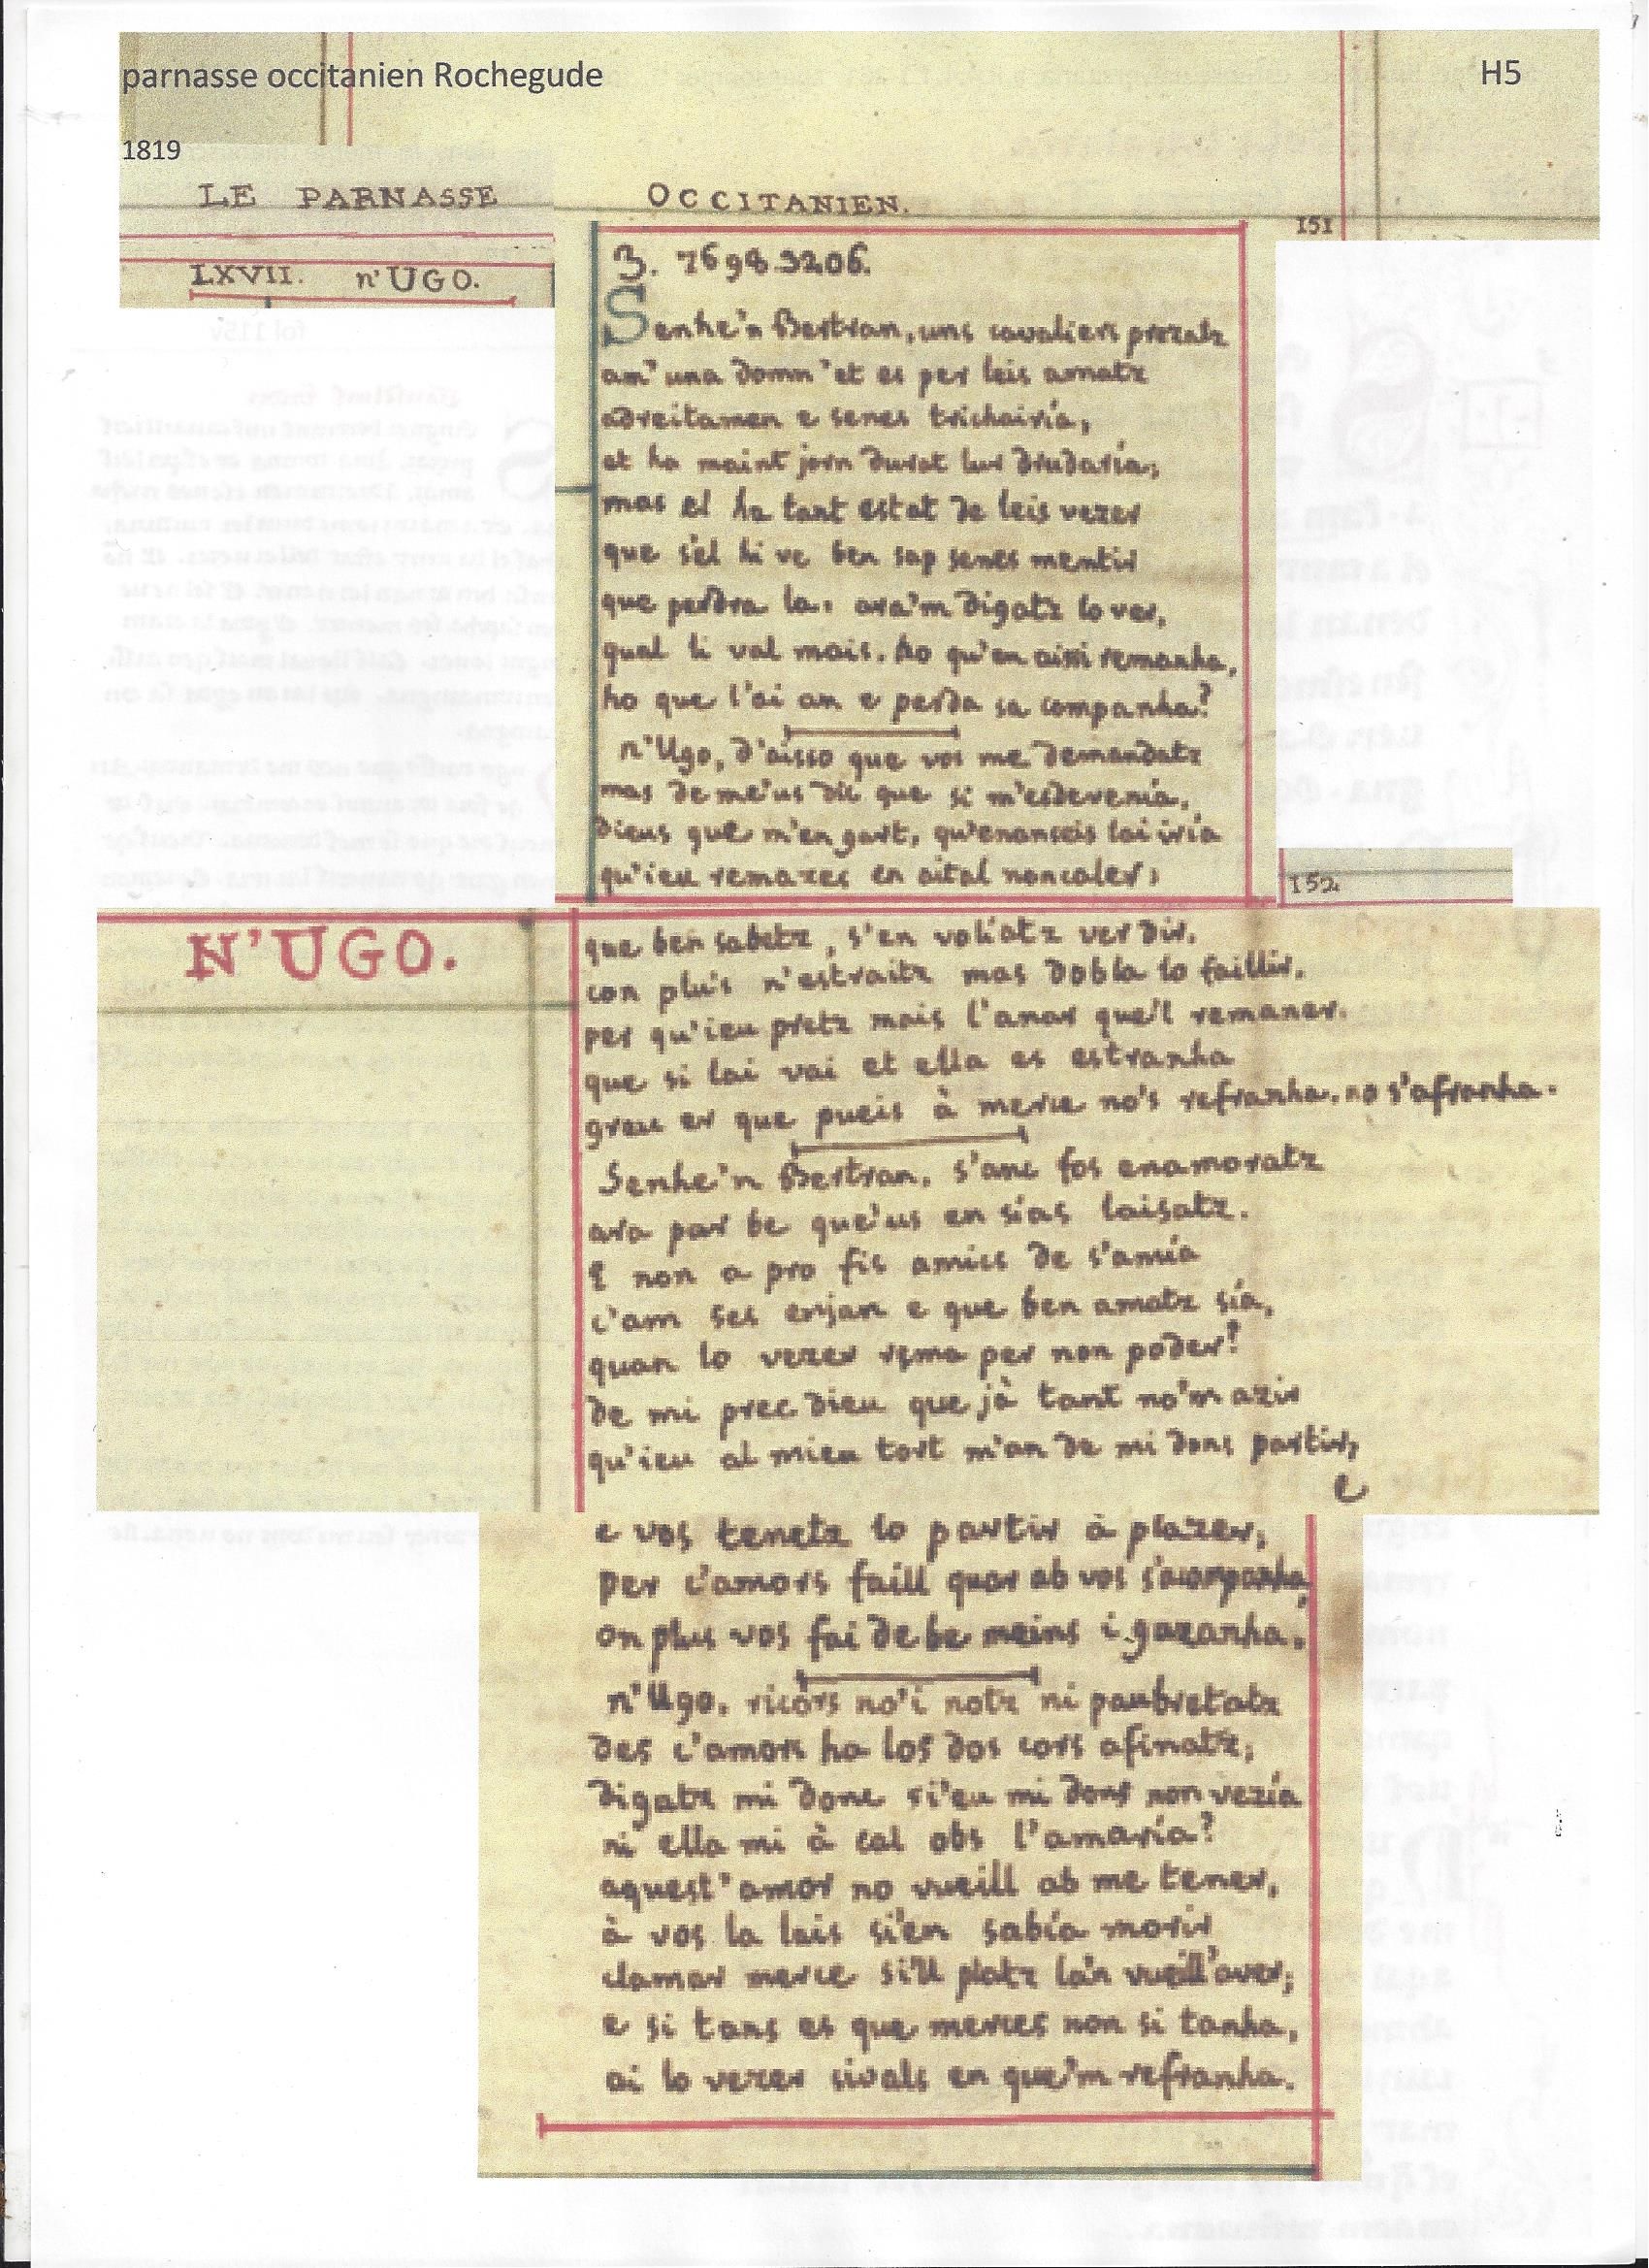 parnasse occitanien Rochegude
H5
1819
LE PARNASSE OCCITANIEN.
151
LXVII. n'UGO.
3. 7698.3206.
Senhe'n Bertran, uns cavaliers prezatz
am' una domn' et es per leis amatz
adreitamen e senes trichairía,
et ha maint jorn durat lur drudaría;
mas el ha tant estat de leis vezer
que s'el li ve ben sap senes mentir
que perdra la: ara'm digatz lo ver,
qual li val mais. ho qu'en aissi remanha,
ho que l'ai an e perda sa companha?
n'Ugo, d'aisso que vos me demandatz
mas de me'us dic que si m'esdevenía,
dieus que m'en gart, qu'enanseis lai iría
qu'ieu remazes en aital noncaler;
152
N'UGO.
que ben sabetz, s'en volíatz ver dir,
con pluis n'estraitz mas dobla lo faillir,
per qu'ieu pretz mais l'anar que'l remaner.
que si lai vai et ella es estranha
greu er que pueis à merce no's refranha. no s'afranha.
Senhe'n Bertran, s'anc fos enamoratz
ara par be que'us en sías laisatz.
E non a pro fis amics de s'amía
c'am ses enjan e que ben amatz sía,
quan lo vezer rema per non poder!
de mi prec dieu que jà tant no'm azir
qu'ieu al mieu tort m'an de mi dons partir,
e
e vos tenetz lo partir à plazer;
per c'amors faill quar ab vos s'acompanha,
on plus vos fai de be meins i gazanha.
n'Ugo, ricors no'i notz ni paubretatz
des c'amors ha los dos cors afinatz;
digatz mi donc si'eu mi dons non vezía
ni ella mi à cal obs l'amaría?
aquest'amor no vueill ab me tener,
à vos la lais si'en sabía morir
clamar merce si'll platz la'n vueill'aver;
e si tans es que merces non si tanha,
ai lo vezer sivals en que'm refranha.